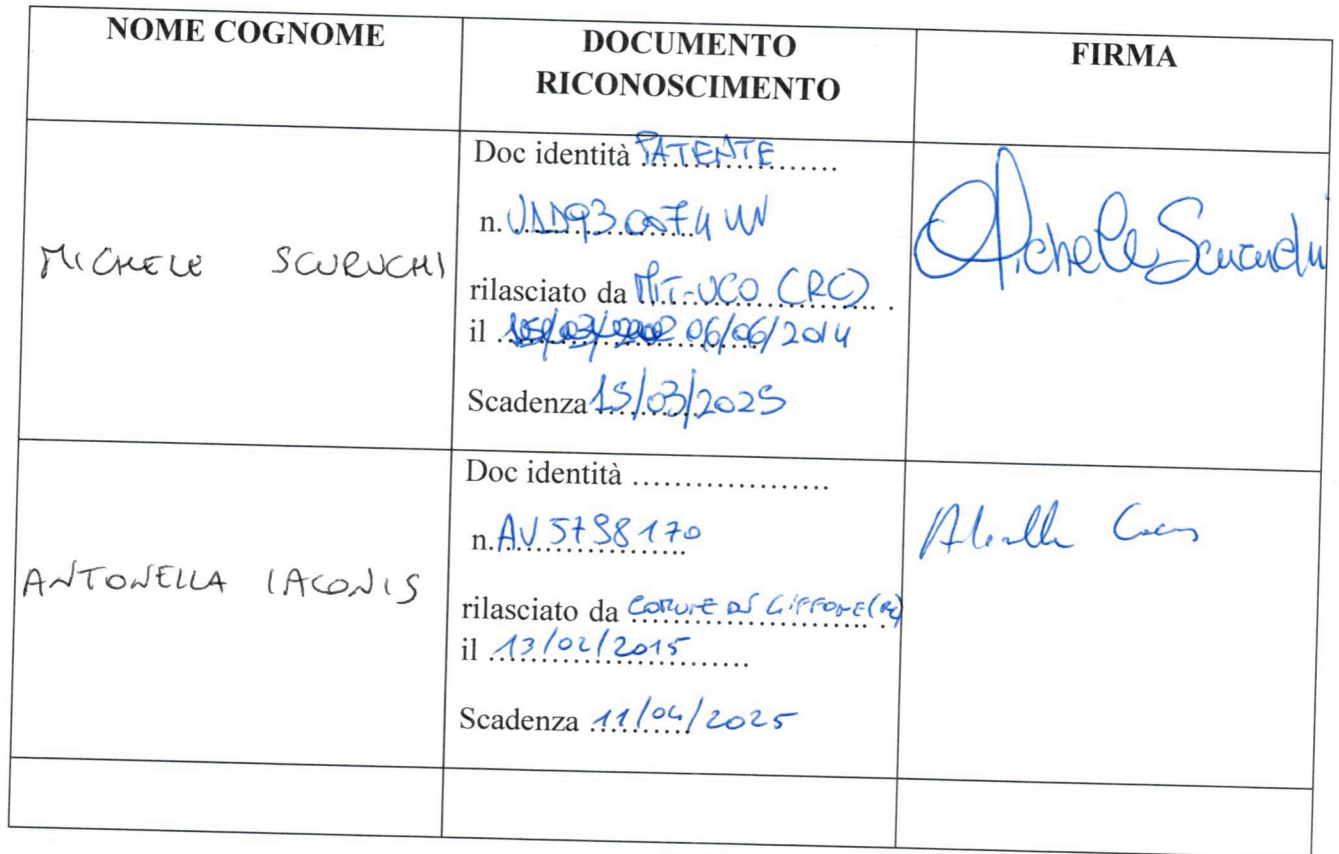 NOME COGNOME
DOCUMENTO
RICONOSCIMENTO
FIRMA
MICHELE SCURUCHI
Doc identità PATENTE
n.
rilasciato da MIT-UCO (RC)
il 06/06/2014
Scadenza 15/03/2025
Michele Scuruchi
ANTONELLA IACONIS
Doc identità ...................
n. AV5798170
rilasciato da COMUNE DI GIFFONE (RC)
il 13/02/2015
Scadenza 11/04/2025